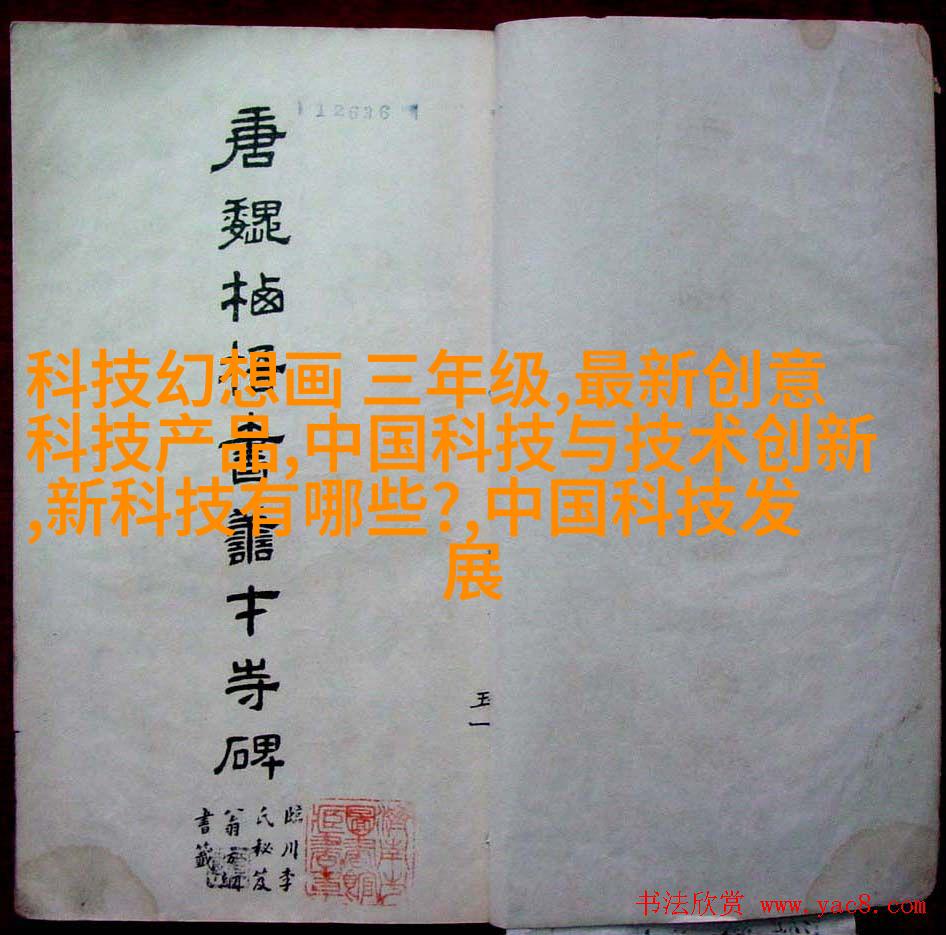 12636
唐魏栖梧書善才寺碑
臨川李
氏秘笈
翁方綱
書籤
科技幻想画 三年级,最新创意
科技产品,中国科技与技术创新
,新科技有哪些?,中国科技发
展
五一
书法欣赏 www.yac8.com